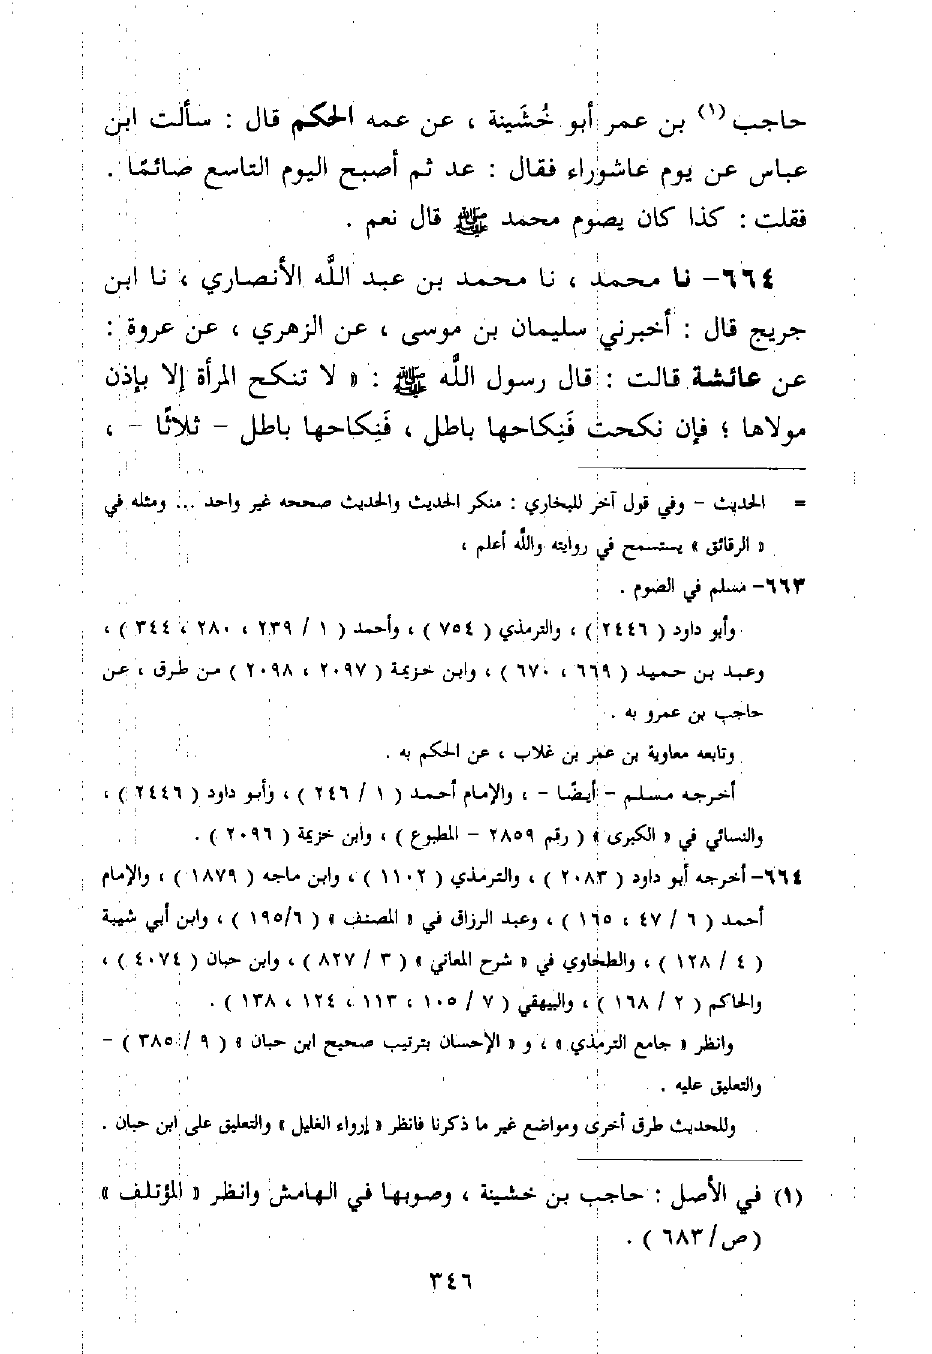 حاجب (١) بن عمر أبو خُشَينة ، عن عمه الحكم قال : سألت ابن
عباس عن يوم عاشوراء فقال : عد ثم أصبح اليوم التاسع صائمًا .
فقلت : كذا كان يصوم محمد ﷺ قال نعم .
٦٦٤- نا محمد ، نا محمد بن عبد اللَّه الأنصاري ، نا ابن
جريج قال : أخبرني سليمان بن موسى ، عن الزهري ، عن عروة :
عن عائشة قالت : قال رسول اللَّه ﷺ : « لا تنكح المرأة إلا بإذن
مولاها ؛ فإن نكحت فَنِكاحها باطل ، فَنِكاحها باطل - ثلاثًا - ،
= الحديث - وفي قول آخر للبخاري : منكر الحديث والحديث صححه غير واحد ... ومثله في
« الرقائق » يستسمح في روايته واللَّه أعلم ،
٦٦٣- مسلم في الصوم .
وأبو داود ( ٢٤٤٦ ) ، والترمذي ( ٧٥٤ ) ، وأحمد ( ١ / ٢٣٩ ، ٢٨٠ ، ٣٤٤ ) ،
وعبد بن حميد ( ٦٦٩ ، ٦٧٠ ) ، وابن خزيمة ( ٢٠٩٧ ، ٢٠٩٨ ) من طرق ، عن
حاجب بن عمرو به .
وتابعه معاوية بن عمر بن غلاب ، عن الحكم به .
أخرجه مسلم - أيضًا - ، والإمام أحمد ( ١ / ٢٤٦ ) ، وأبو داود ( ٢٤٤٦ ) ،
والنسائي في « الكبرى » ( رقم ٢٨٥٩ - المطبوع ) ، وابن خزيمة ( ٢٠٩٦ ) .
٦٦٤- أخرجه أبو داود ( ٢٠٨٣ ) ، والترمذي ( ١١٠٢ ) ، وابن ماجه ( ١٨٧٩ ) ، والإمام
أحمد ( ٦ / ٤٧ ، ١٦٥ ) ، وعبد الرزاق في « المصنف » ( ١٩٥/٦ ) ، وابن أبي شيبة
( ٤ / ١٢٨ ) ، والطحاوي في « شرح المعاني » ( ٣ / ٨٢٧ ) ، وابن حبان ( ٤٠٧٤ ) ،
والحاكم ( ٢ / ١٦٨ ) ، والبيهقي ( ٧ / ١٠٥ ، ١١٣ ، ١٢٤ ، ١٣٨ ) .
وانظر « جامع الترمذي » ، و « الإحسان بترتيب صحيح ابن حبان » ( ٩ / ٣٨٥ ) -
والتعليق عليه .
وللحديث طرق أخرى ومواضع غير ما ذكرنا فانظر « إرواء الغليل » والتعليق على ابن حبان .
(١) في الأصل : حاجب بن خشينة ، وصوبها في الهامش وانظر « المؤتلف »
(ص/ ٦٨٣ ) .
٣٤٦